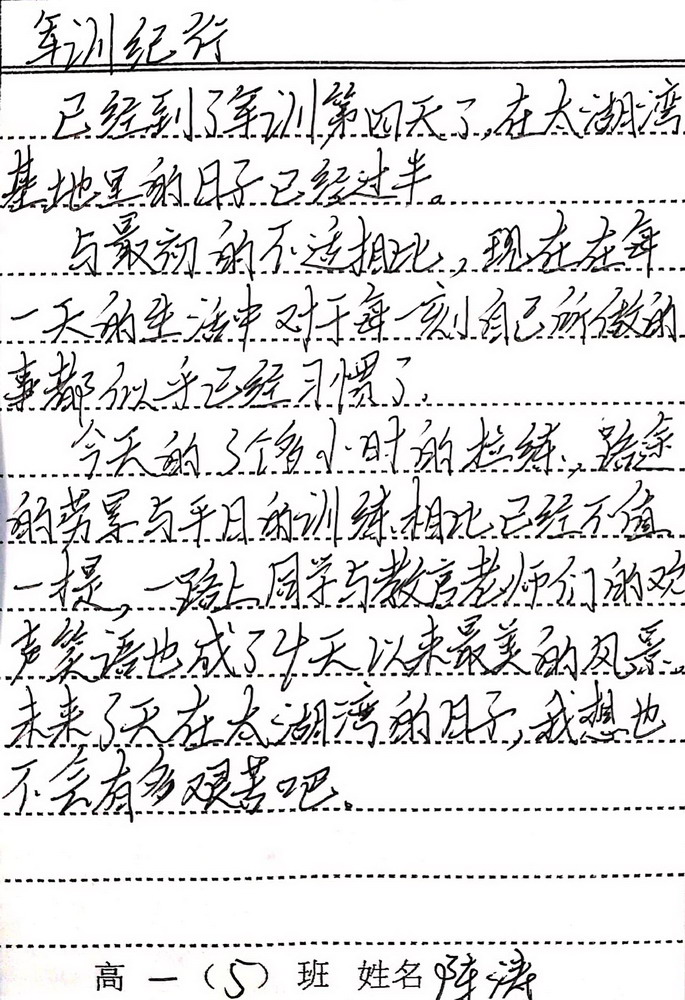 军训纪行
已经到了军训第四天了,在太湖湾
基地里的日子已经过半。
与最初的不适相比,现在在每
一天的生活中对于每一刻自己所做的
事都似乎已经习惯了。
今天的3个多小时的拉练,路途
的劳累与平日的训练相比已经不值
一提,一路上同学与教官老师们的欢
声笑语也成了4天以来最美的风景。
未来3天在太湖湾的日子,我想也
不会有多艰苦吧。
高一(5)班 姓名 陈涛